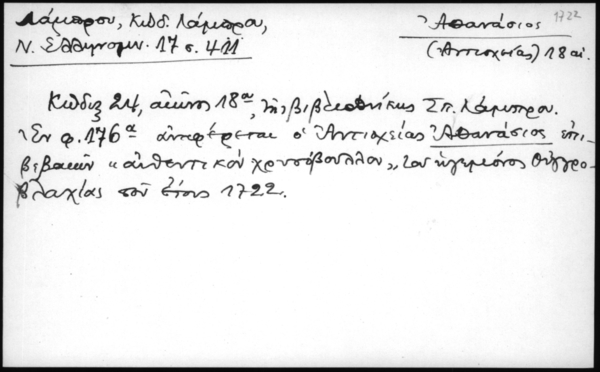 Λάμπρου, Κώδ. Λάμπρου,
Ν. Ἑλληνομν. 17 σ. 411
Ἀθανάσιος
1722
(Ἀντιοχείας) 18 αἰ.
Κῶδιξ 24, αἰῶνος 18ου, τῆς βιβλιοθήκης Σπ. Λάμπρου.
Ἐν φ. 176α ἀναφέρεται ὁ Ἀντιοχείας Ἀθανάσιος ἐπι-
βεβαιῶν «αὐθεντικὸν χρυσόβουλλον», τοῦ ἡγεμόνος Οὑγγρο-
βλαχίας τοῦ ἔτους 1722.